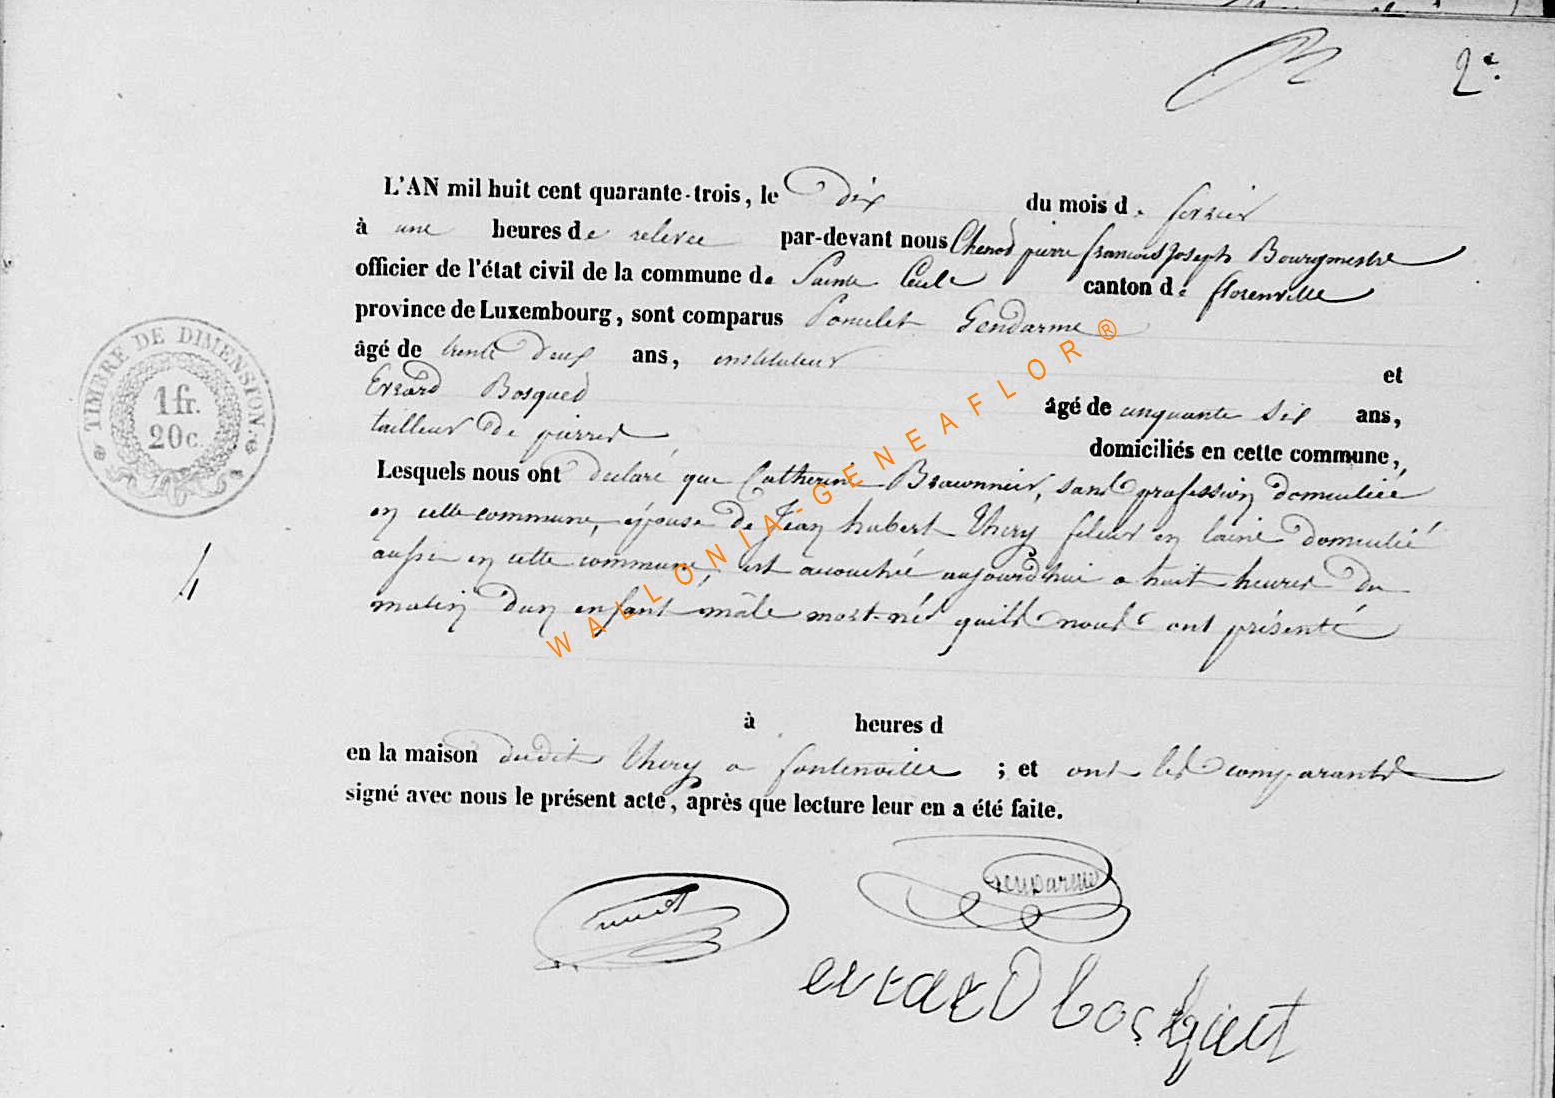 2e.
L'AN mil huit cent quarante-trois, le Dix du mois de fevrier
à une heures de relevée par-devant nous Chenot pierre françois joseph Bourgmestre
officier de l'état civil de la commune de Sainte Cecile canton de florenville
province de Luxembourg, sont comparus Poncelet Gendarme
âgé de trente deux ans, instituteur et
Evrard Bosqued âgé de cinquante six ans,
tailleur de pierres domiciliés en cette commune,
Lesquels nous ont declaré que Catherine Braconnier, sans profession domiciliée
en cette commune, épouse de Jean hubert Thiry fileur en laine domicilié
aussi en cette commune, est accouchée aujourd'hui a huit heures du
matin d'un enfant mâle mort-née quils nous ont présenté
à heures d
en la maison dudit Thiry a fontenoille ; et ont les comparants
signé avec nous le présent acte, après que lecture leur en a été faite.
Gendarme
evrard bosquet
TIMBRE DE DIMENSION.
1 fr.
20 c.
WALLONIA-GENEAFLOR®